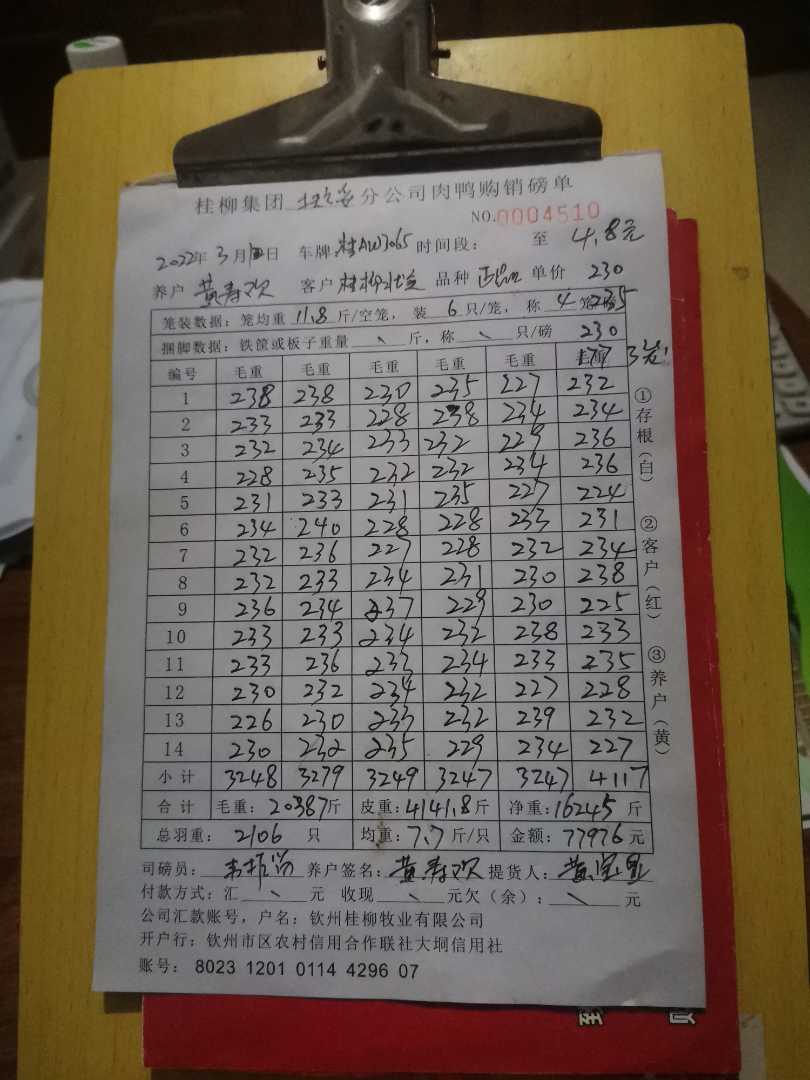 桂柳集团 分公司肉鸭购销磅单
NO.0004510
2022年3月 日 车牌:桂AW3065 时间段: 至 4.8元
养户 黄寿欢 客户 桂柳 品种 正品 单价 230
笼装数据:笼均重 11.8 斤/空笼,装 6 只/笼,称 4 235
捆脚数据:铁筐或板子重量 \ 斤,称 \ 只/磅 230
编号 毛重 毛重 毛重 毛重 毛重 77 3笼
1 238 238 230 235 227 232
2 233 233 228 238 234 234
3 232 234 233 232 229 236
4 228 235 232 232 234 236
5 231 233 231 235 227 224
6 234 240 228 228 233 231
7 232 236 227 228 232 234
8 232 233 234 231 230 238
9 236 234 237 229 230 225
10 233 233 234 232 238 233
11 233 236 232 234 233 235
12 230 232 234 232 227 228
13 226 230 233 232 239 232
14 230 232 235 229 234 227
小计 3248 3279 3249 3247 3247 4117
合计 毛重:20387斤 皮重:4141.8斤 净重:16245斤
总羽重: 2106 只 均重:7.7斤/只 金额:77976元
司磅员: 养户签名:黄寿欢 提货人:黄
付款方式:汇 \ 元 收现 \ 元欠(余): \ 元
公司汇款账号,户名:钦州桂柳牧业有限公司
开户行:钦州市区农村信用合作联社大垌信用社
账号: 8023 1201 0114 4296 07
①存根(白)
②客户(红)
③养户(黄)